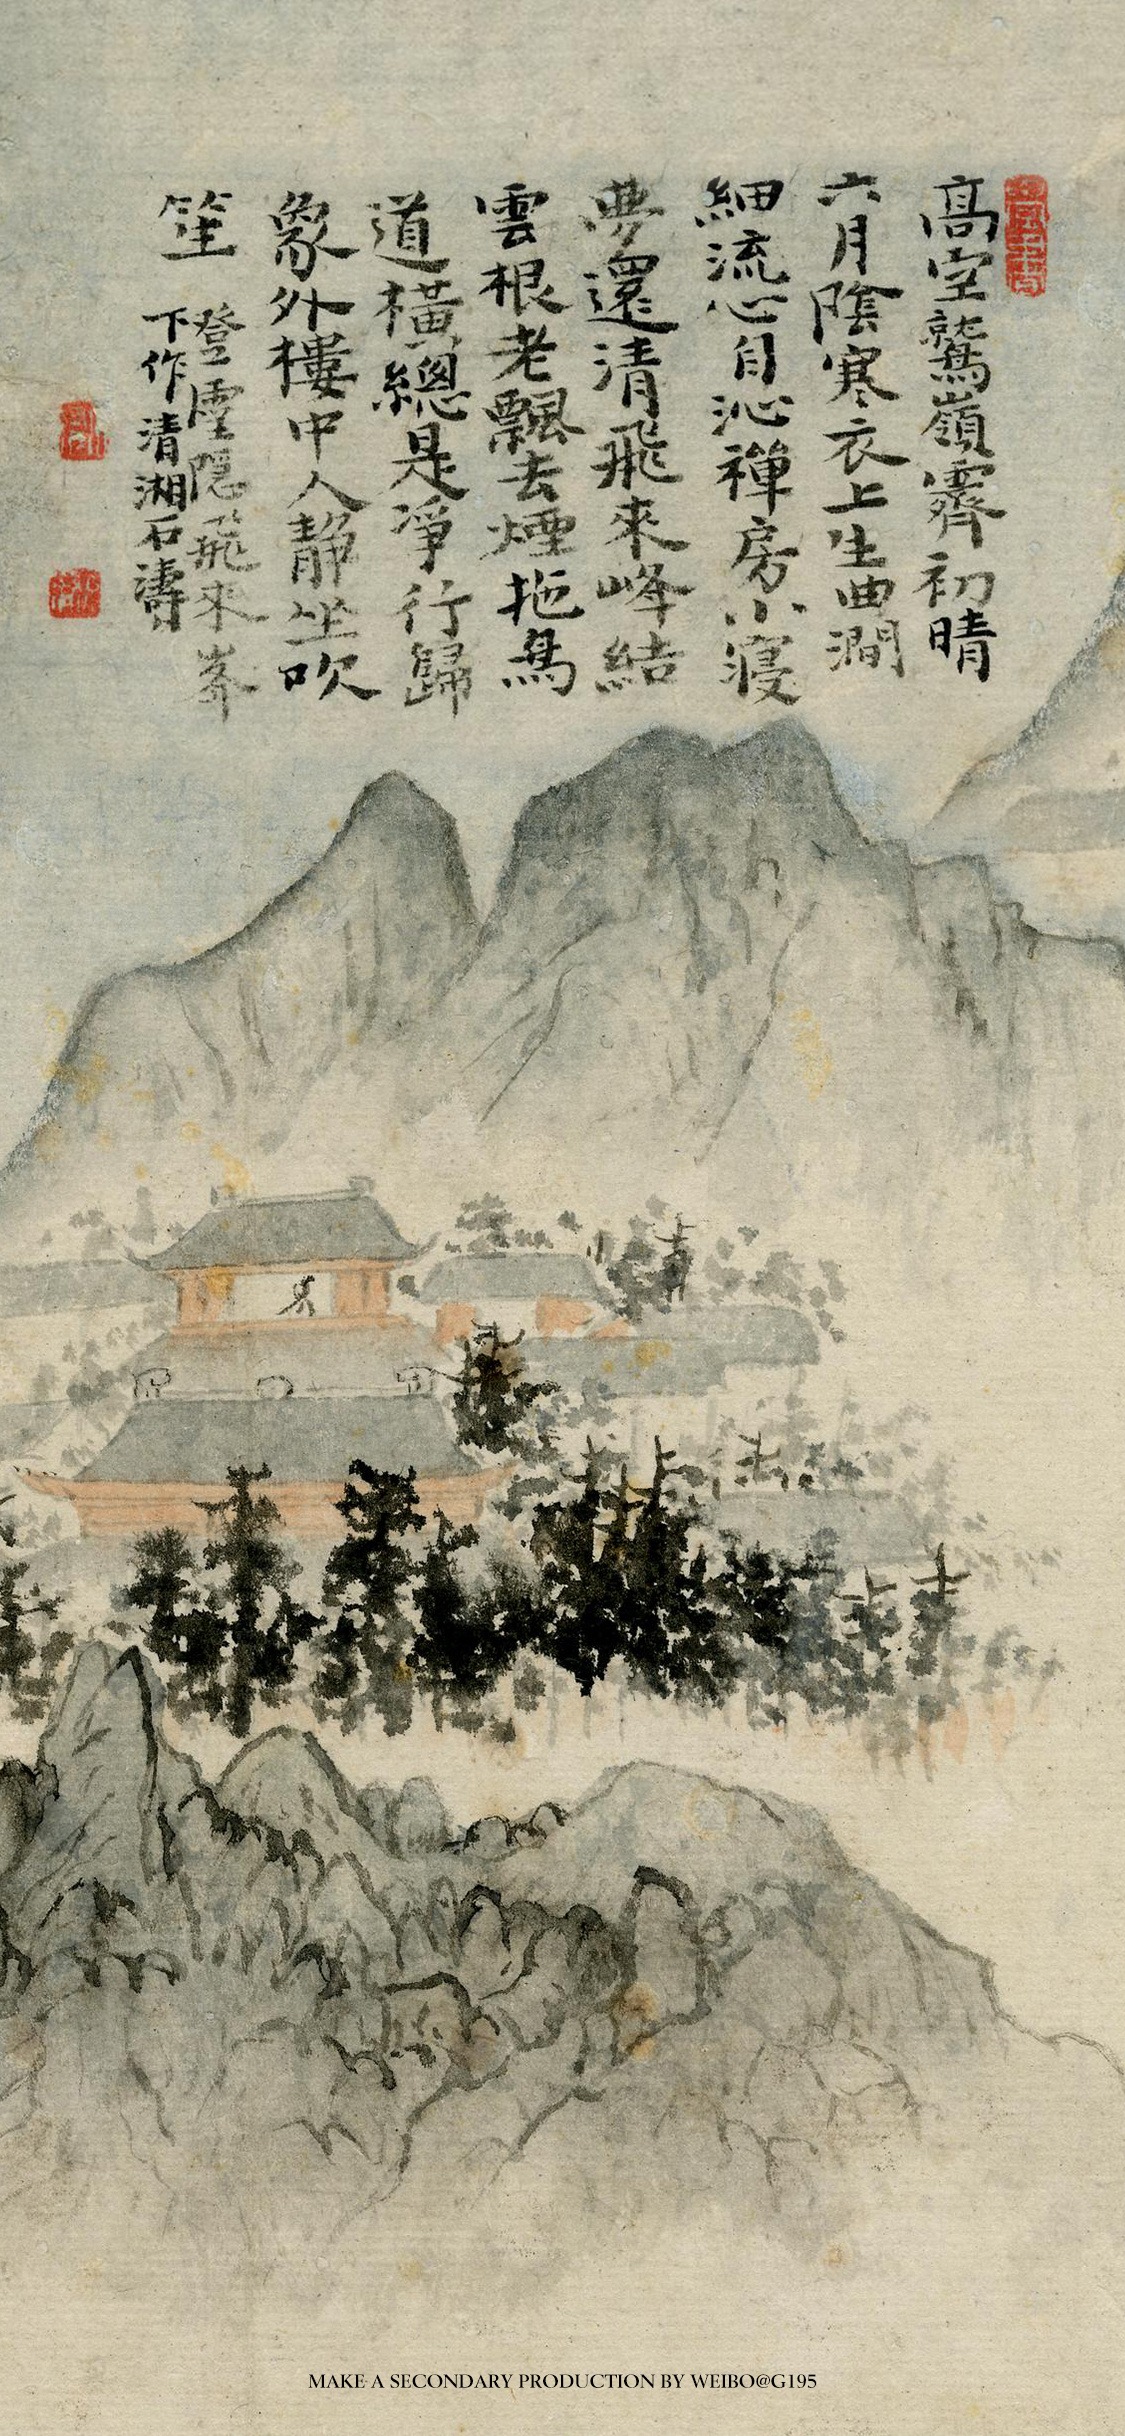 高空鷲嶺霽初晴
六月陰寒衣上生曲澗
細流心自沁禪房小寢
夢還清飛來峰結
雲根老飄去煙拖鳥
道橫總是淨行歸
象外樓中人靜坐吹
笙
登雲隱飛來峯
下作清湘石濤
MAKE A SECONDARY PRODUCTION BY WEIBO@G195